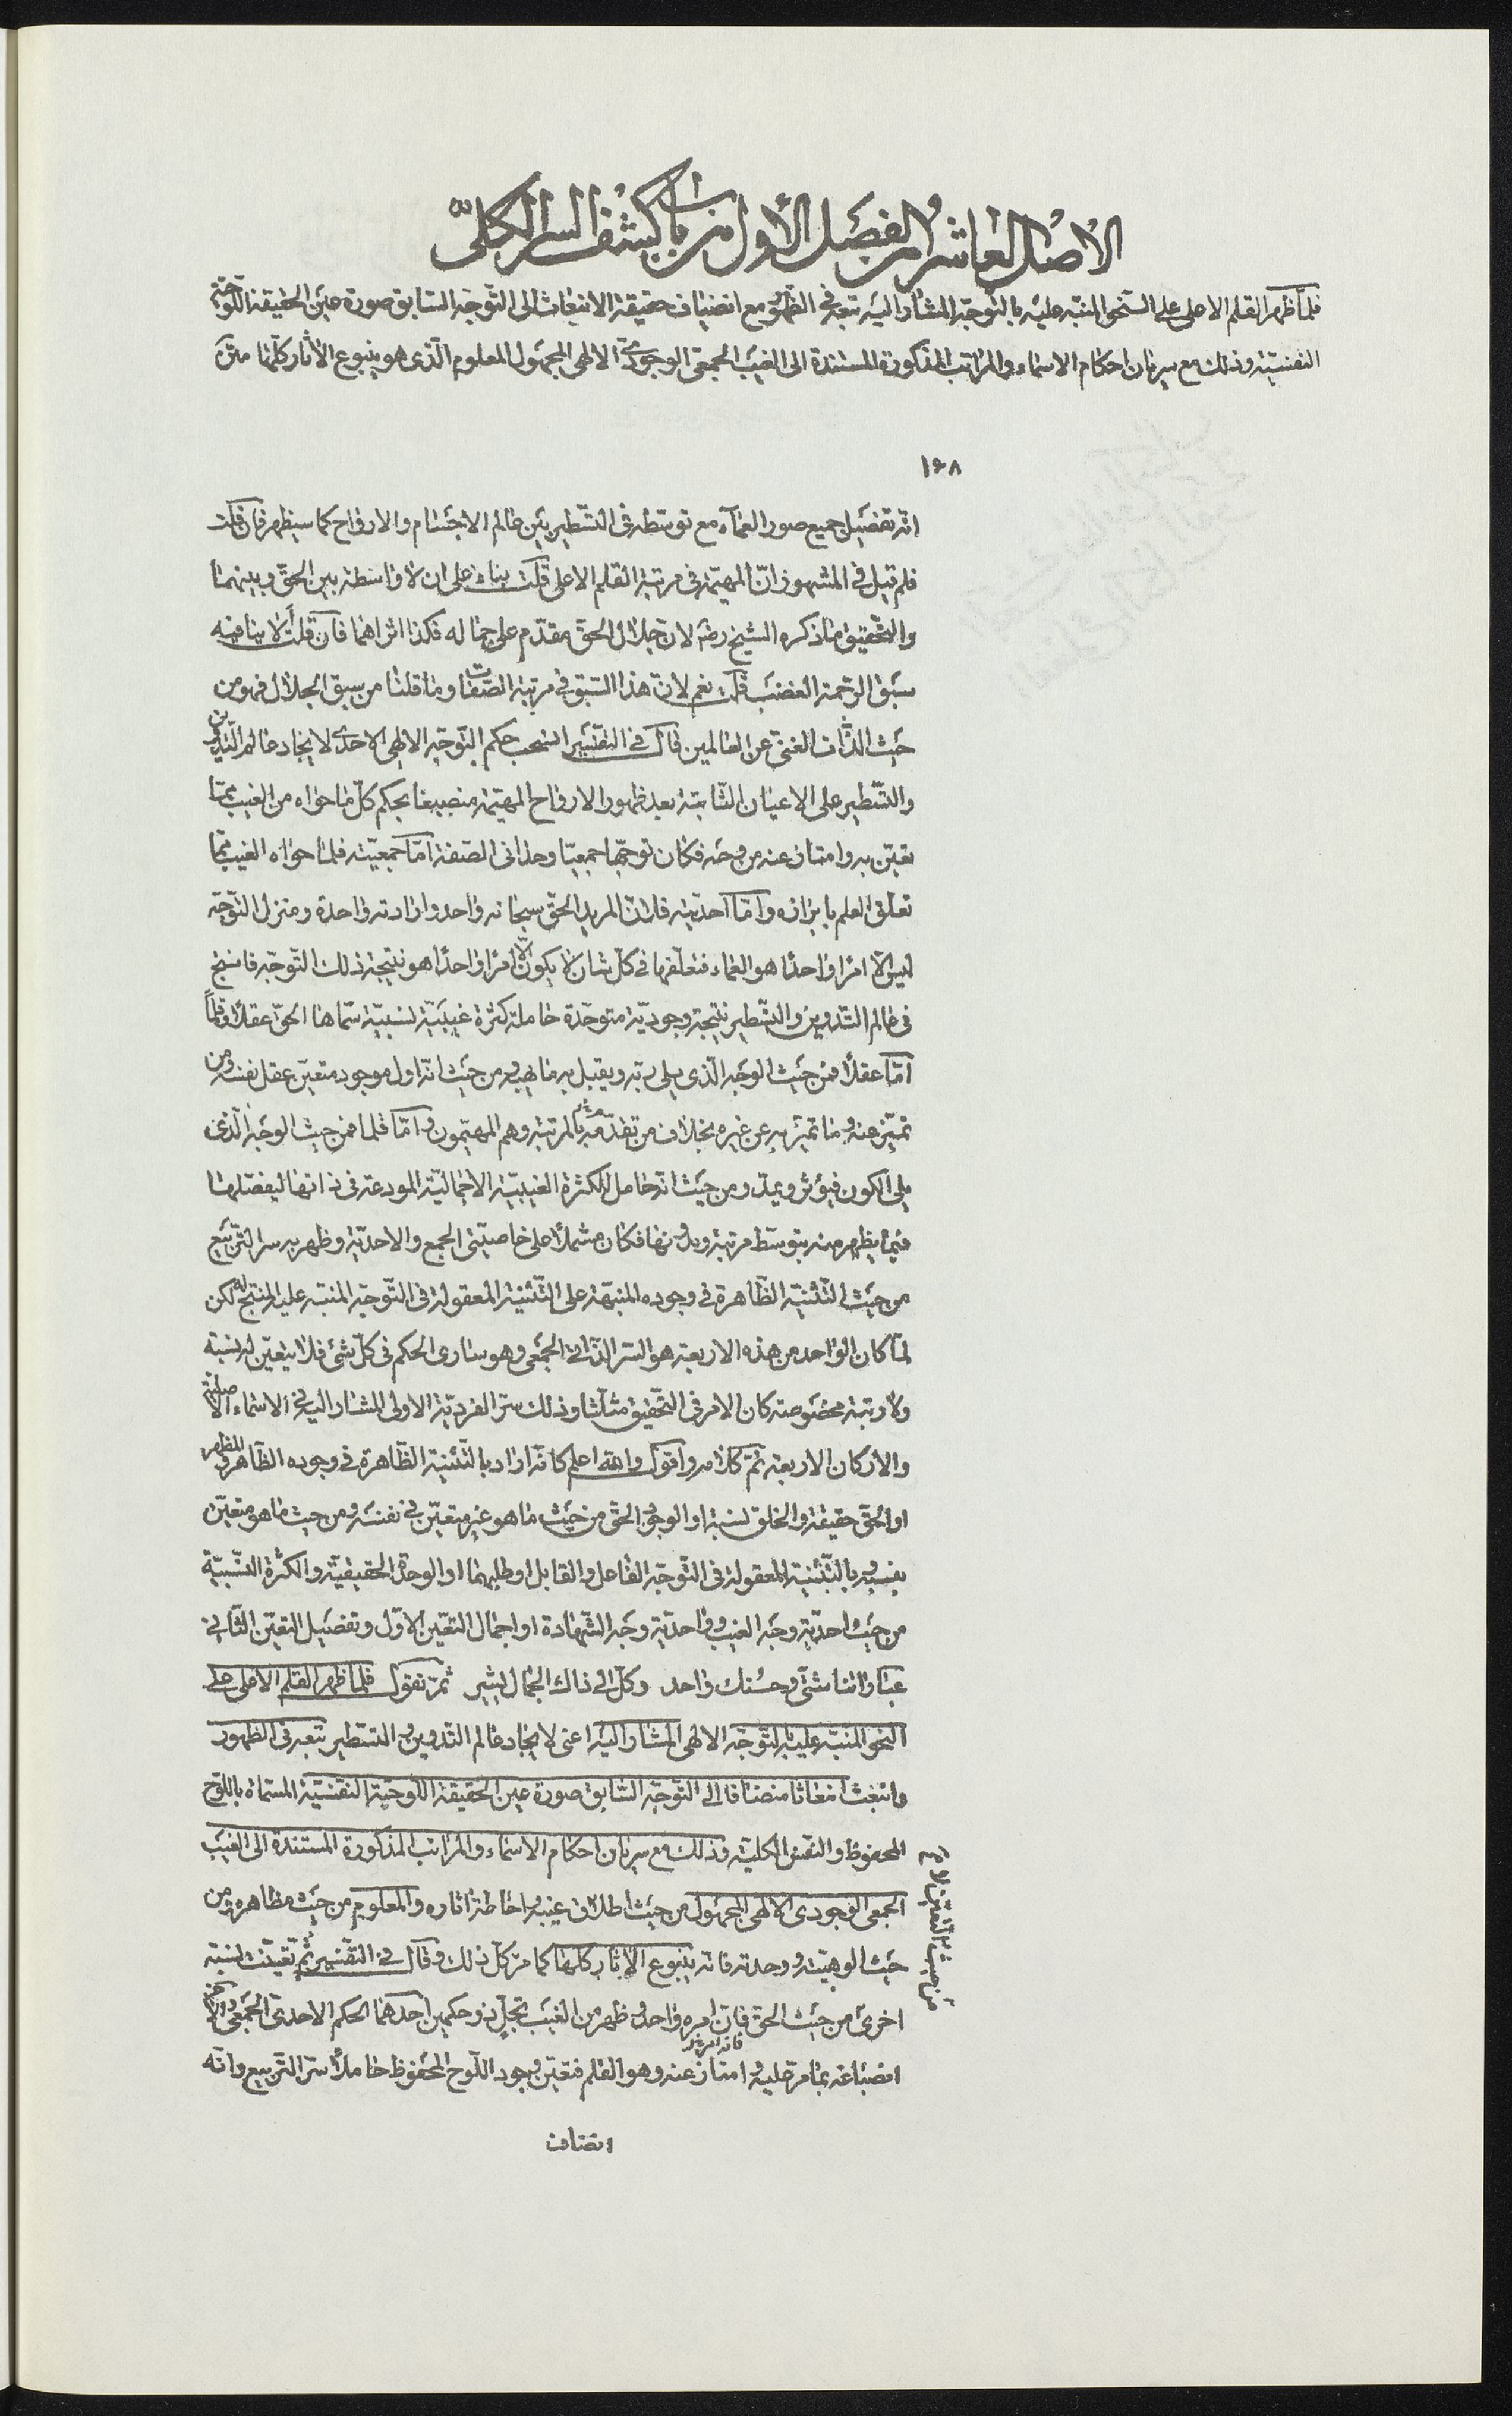 الاصل العاشر من الفصل الأول من باب كشف السر الكلّى
فلمّا ظهر القلم الاعلى على النحو المنبّه عليه بالتوجّه المشار اليه تبعه فى الظهور مع انضياف حقيقة الانبعاث الى التوجّه السّابق صورة عين الحقيقة اللّوحيّة
النفسيّة وذلك مع سريان احكام الاسماء والمراتب المذكورة المستندة الى الغيب الجمعى الوجودى الالهى المجهول المعلوم الّذى هو ينبوع الآثار كلّها
١٦٨
انّه تفضيل جميع صور العماء مع توسّطه فى التسطير بين عالم الاجسام والارواح كما سيظهر فان قلت
فلم قيل فى المشهور انّ المهيّمة فى مرتبة القلم الاعلى قلت بناء على ان لا واسطة بين الحقّ وبينهما
والتّحقيق ما ذكره الشيخ رضه لانّ جلال الحقّ مقدّم على جماله فكذا اثراهما فان قلت ألا ينافيه
سبق الرّحمة الغضب قلت نعم لانّ هذا السّبق فى مرتبة الصّفات وما قلنا من سبق الجلال فهو من
حيث الذّات الغنى عن العالمين قال فى التفسير انسحب حكم التوجّه الالهى الاحدى لايجاد عالم التّدوين
والتّسطير على الاعيان الثّابتة بعد ظهور الارواح المهيّمة منصبغا بحكم كلّ ما حواه من الغيب ممّا
تعيّن به وامتاز عنه من وجه فكان توجّها جمعيّا وحدانى الصّفة امّا جمعيّته فلما حواه الغيب ممّا
تعلّق العلم بابرازه وامّا احديّته فلانّ المريد الحقّ سبحانه واحد وارادته واحدة ومنزل التّوجّه
ليس الّا امرا واحدا هو العماء فمتعلّقها فى كلّ شان لا يكون الّا امرا واحدا هو نتيجة ذلك التوجّه فانتج
فى عالم التّدوين والتّسطير نتيجة وجوديّة متوحّدة حاملة كثرة غيبيّة نسبيّة سمّاها الحقّ عقلا وقلماً
امّا عقلا فمن حيث الوجه الّذى يلى ربّه ويقبل به ما يهبه ومن حيث انّه اول موجود متعيّن عقل نفسه ومن
تميّز عنه وما تميّز به عن غيره بخلاف من تقدّمه بالمرتبة وهم المهيّمون وامّا قلما فمن حيث الوجه الّذى
يلى الكون فيؤثر ويمدّ ومن حيث انّه حامل للكثرة الغيبيّة الاجماليّة المودعة فى ذاتها ليفصّلها
فيما يظهر منه بتوسّط مرتبة وبدونها فكان مشتملا على خاصيّتى الجمع والاحديّة وظهر به سر التربيع
من حيث التّثنية الظّاهرة فى وجوده المنبّهة على التّثنية المعقولة فى التّوجّه المنبّه عليه المنتج له لكن
لمّا كان الواحد من هذه الاربعة هو السّر الذّاتى الجمعى وهو سارى الحكم فى كلّ شئ فلا يتعيّن له نسبة
ولا رتبة مخصوصة كان الامر فى التحقيق مثلّثا وذلك سرّ الفرديّة الاولى المشار اليه فى الاسماء الاصليّة
والاركان الاربعة تمّ كلامه واقول والله اعلم كانّه اراد بالتّثنية الظّاهرة فى وجوده الظّاهر والمظهر
او الحقّ حقيقة والخلق نسبة او الوجود الحقّ من حيث ما هو غير متعيّن فى نفسه ومن حيث ما هو متعيّن
بنسبه وبالتّثنية المعقولة فى التّوجّه الفاعل والقابل او طلبهما او الوحدة الحقيقيّة والكثرة النّسبيّة
من حيث احديّة وجه الغيب وواحديّة وجه الشّهادة او اجمال التعيّن الاوّل وتفضيل التعيّن الثّانى
عباراتنا شتّى وحسنك واحد وكلّ الى ذاك الجمال يشير ثمّ نقول فلمّا ظهر القلم الاعلى على
النحو المنبّه عليه بالتّوجّه الالهى المشار اليه اعنى لايجاد عالم التّدوين والتسطير تبعه فى الظهور
وانبعث انبعاثا منضافا الى التّوجّه السّابق صورة عين الحقيقة اللّوحيّة النّفسيّة المسمّاة باللّوح
المحفوظ والنفس الكليّة وذلك مع سريان احكام الاسماء والمراتب المذكورة المستندة الى الغيب
الجمعى الوجودى الالهى المجهول من حيث اطلاق غيبه واحاطة آثاره والمعلوم من حيث مظاهره ومن
حيث الوهيّته ووحدته فانّه ينبوع الآثار كلّها كما مرّ كلّ ذلك وقال فى التّفسير ثمّ تعيّنت نسبة
اخرى من حيث الحقّ فان امره واحد وظهر من الغيب تجلّ ذو حكمين احدهما الحكم الاحدى الجمعى والآخر
انصباغه بما مرّ عليه وامتاز عنه وهو القلم فتعيّن وجود اللّوح المحفوظ حاملا سرّ التربيع وانّه
انضاف